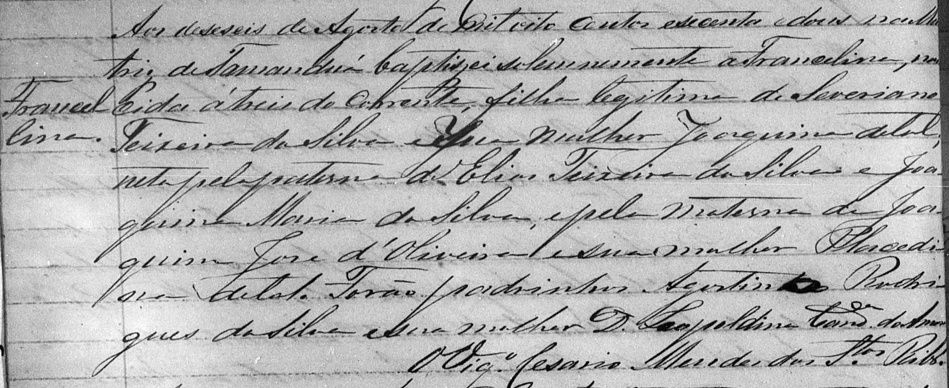 Aos deseseis de Agosto de mil oito centos esecenta e dous na ma
triz de Tamanduá baptizei solemnemente a Francelina, nas
Francel
lina.
cida á treis do Corrente, filha legitima de Severiano
Teixeira da Silva e Sua mulher Joaquina de tal,
neta pela paterna de Elias Teixeira da Silva e Joa
quina Maria da Silva, e pela materna de Joa
quim José d'Oliveira e sua mulher Placedi
na de tal. Forão padrinhos Agostinho Rodri
gues da Silva e sua mulher D. Leopoldina Cand.da do Amor
O Vig.o Cesario Mendes dos S.tos Rib